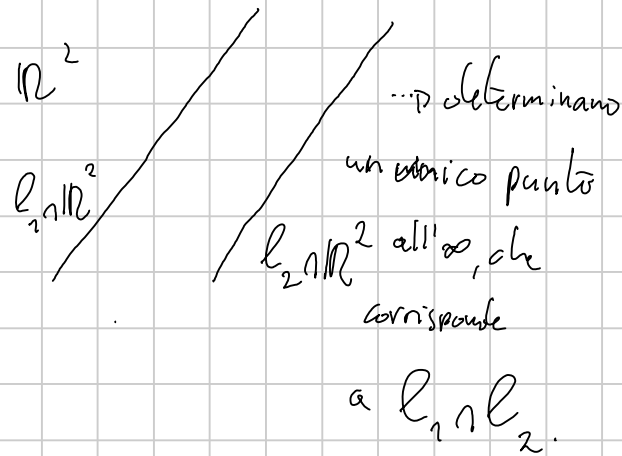 ℝ²
...⇢ determinano
un unico punto
l₁∩ℝ²
l₂∩ℝ² all'∞, che
corrisponde
a l₁∩l₂.